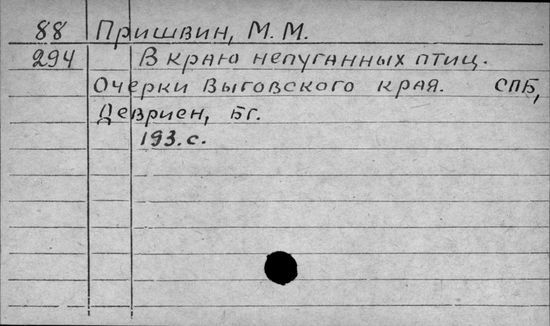 88 Пришвин, М. М.
294 В краю непуганных птиц.
Очерки Выговского края. СПБ,
Девриен, Бг.
193. с.